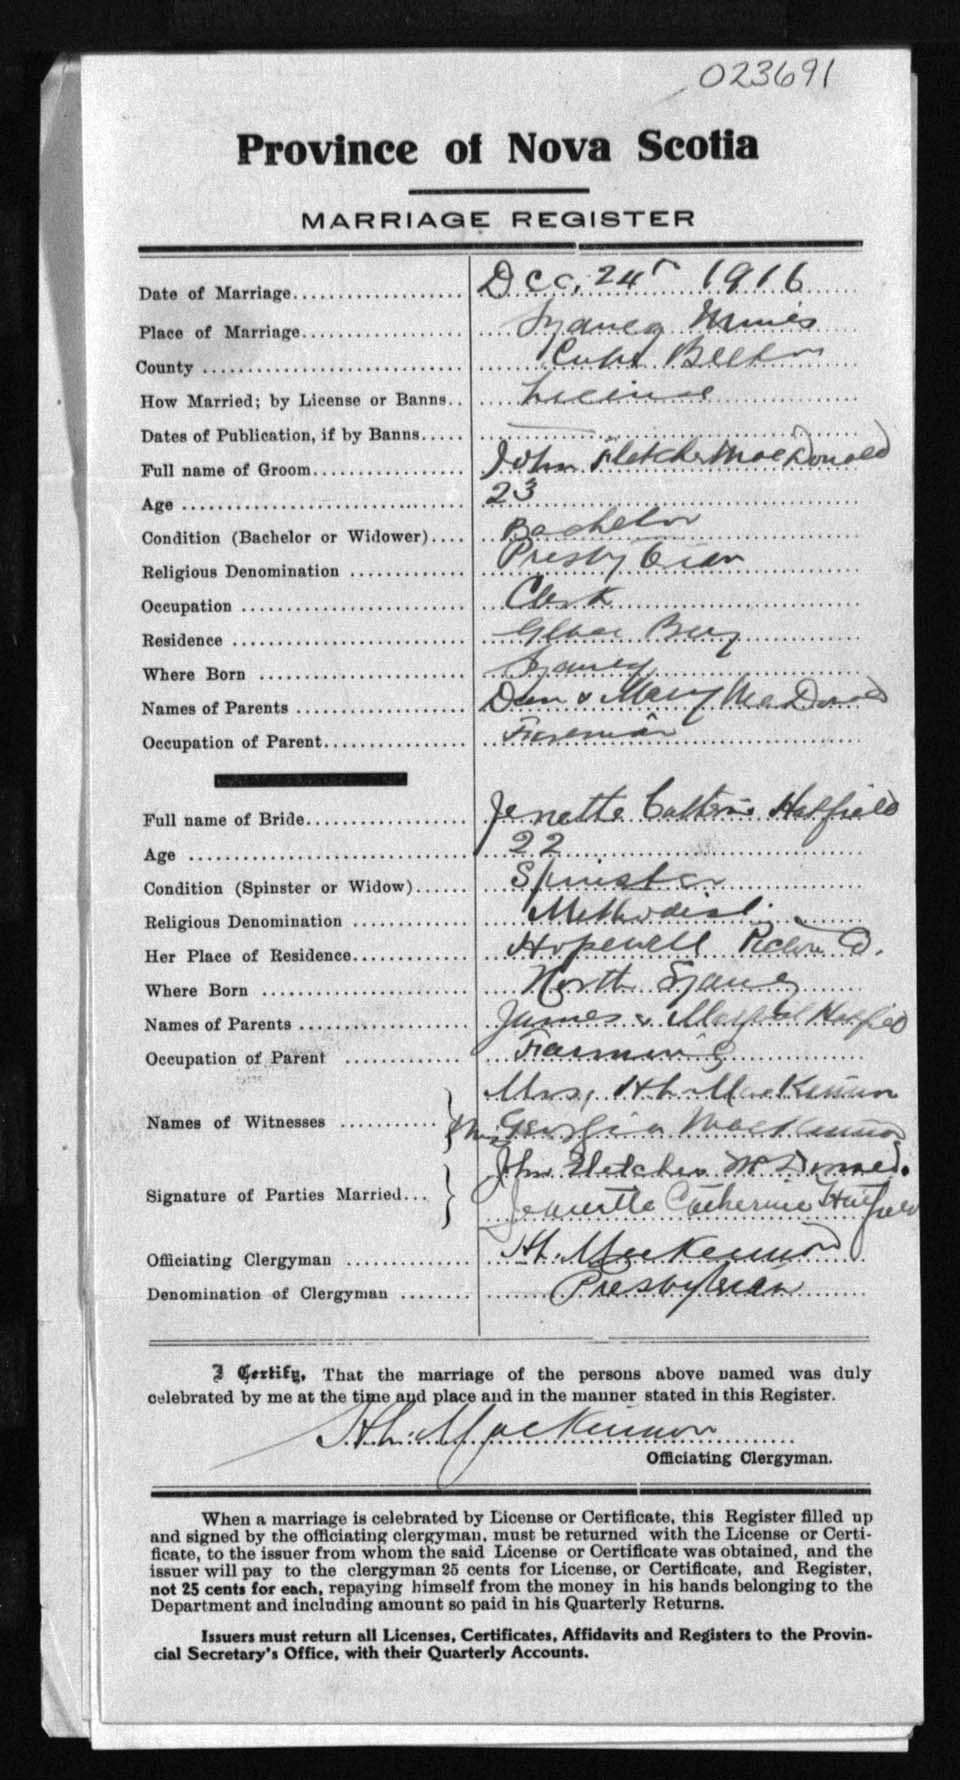 023691
Province of Nova Scotia
MARRIAGE REGISTER
Date of Marriage Dec. 24th 1916
Place of Marriage Sydney Mines
County Cape Breton
How Married; by License or Banns License
Dates of Publication, if by Banns
Full name of Groom John Fletcher MacDonald
Age 23
Condition (Bachelor or Widower) Bachelor
Religious Denomination Presbyterian
Occupation Clerk
Residence Glace Bay
Where Born Sydney
Names of Parents Dan & Mary MacDonald
Occupation of Parent
Full name of Bride Jenette Hatfield
Age 22
Condition (Spinster or Widow) Spinster
Religious Denomination Methodist
Her Place of Residence Hopewell Pictou Co.
Where Born North Sydney
Names of Parents James & Margaret Hatfield
Occupation of Parent Farming
Mrs. H. L. MacKinnon
Names of Witnesses
Georgia MacKinnon
John Fletcher McDonald.
Signature of Parties Married
Jeanette Catherine Hatfield
Officiating Clergyman H. L. MacKinnon
Denomination of Clergyman Presbyterian
I Certify, That the marriage of the persons above named was duly
celebrated by me at the time and place and in the manner stated in this Register.
H. L. MacKinnon
Officiating Clergyman.
When a marriage is celebrated by License or Certificate, this Register filled up
and signed by the officiating clergyman, must be returned with the License or Certi-
ficate, to the issuer from whom the said License or Certificate was obtained, and the
issuer will pay to the clergyman 25 cents for License, or Certificate, and Register,
not 25 cents for each, repaying himself from the money in his hands belonging to the
Department and including amount so paid in his Quarterly Returns.
Issuers must return all Licenses, Certificates, Affidavits and Registers to the Provin-
cial Secretary's Office, with their Quarterly Accounts.